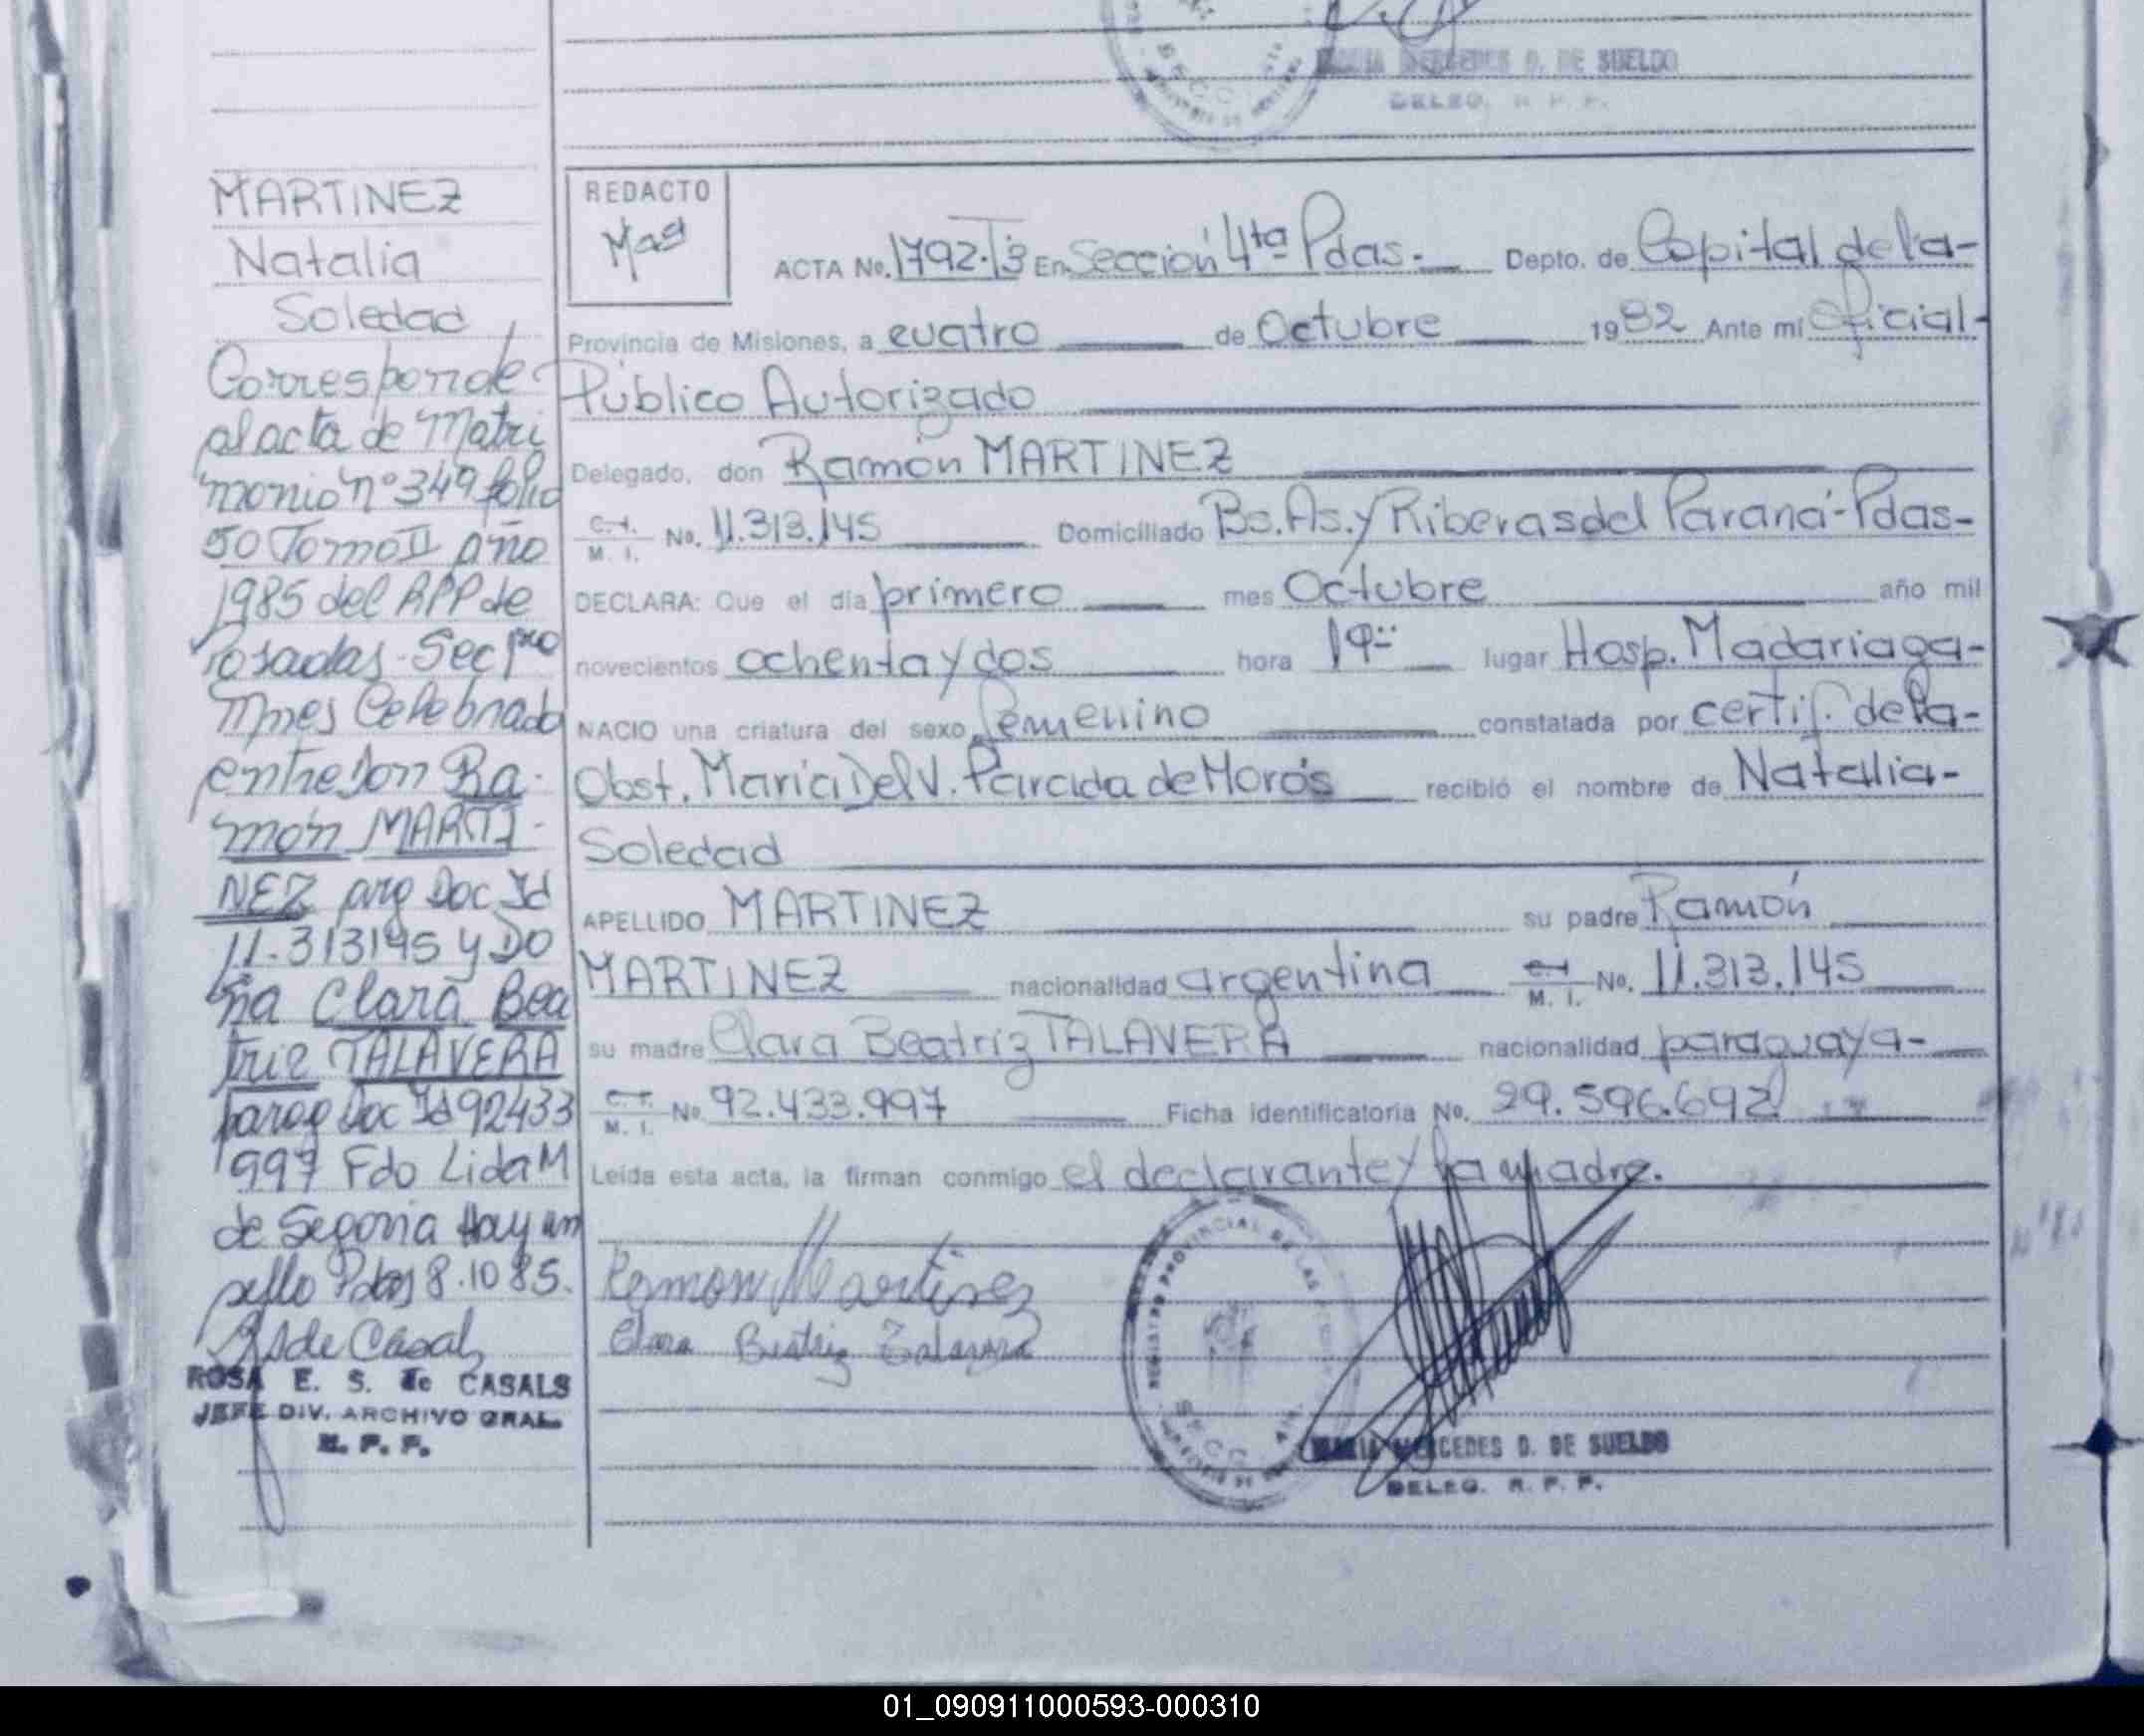 MARIA MERCEDES D. DE SUELDO
DELEG. R. P. P.
MARTINEZ
Natalia
Soledad
Corresponde
al acta de Matri
monio nº 349 folio
50 Tomo II año
1985 del RPP de
Posadas - Sec 1ra
Mnes Celebrado
entre don Ra-
món MARTI-
NEZ arg Doc Id
11.313145 y DO
ña Clara Bea
triz TALAVERA
parag Doc Id 92433
997 Fdo Lida M
de Segovia Hay un
sello Pdas 8.10 85.
ROSA E. S. de CASALS
JEFE DIV. ARCHIVO GRAL.
R. P. P.
REDACTO
ACTA No. 1792-T3 En Sección 4ta Pdas.- Depto. de Capital de la-
Provincia de Misiones, a cuatro de Octubre 1982 Ante mi Oficial-
Público Autorizado
Delegado, don Ramón MARTINEZ
C. I. M. I. No. 11.313.145 Domiciliado Bs. As. y Riberas del Paraná - Pdas-
DECLARA: Que el día primero mes Octubre año mil
novecientos ochenta y dos hora 19 lugar Hosp. Madariaga-
NACIO una criatura del sexo femenino constatada por certif. de la-
Obst. Maria Del V. Parcida de Morós recibió el nombre de Natalia-
Soledad
APELLIDO MARTINEZ su padre Ramón
MARTINEZ nacionalidad argentina C. I. M. I. No. 11.313.145
su madre Clara Beatriz TALAVERA nacionalidad paraguaya-
C. I. M. I. No. 92.433.997 Ficha identificatoria No. 29.596.692
Leída esta acta, la firman conmigo el declarante y la madre.
Ramon Martinez
Clara Beatriz Talavera
REGISTRO PROVINCIAL DE LAS
MARIA MERCEDES D. DE SUELDO
DELEG. R. P. P.
01_090911000593-000310